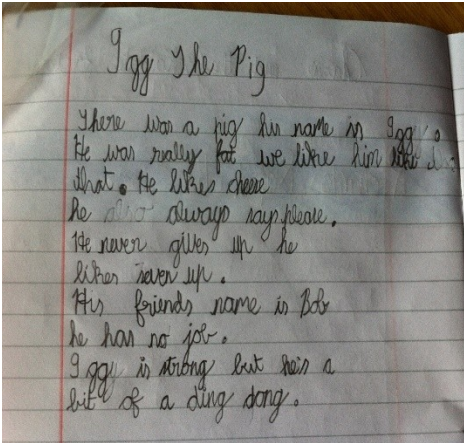 Iggy The Pig
There was a pig his name is Iggy.
He was really fat we like him like
that. He likes cheese
he also always says please.
He never gives up he
likes seven up.
His friends name is Bob
he has no job.
Iggy is strong but he's a
bit of a ding dong.